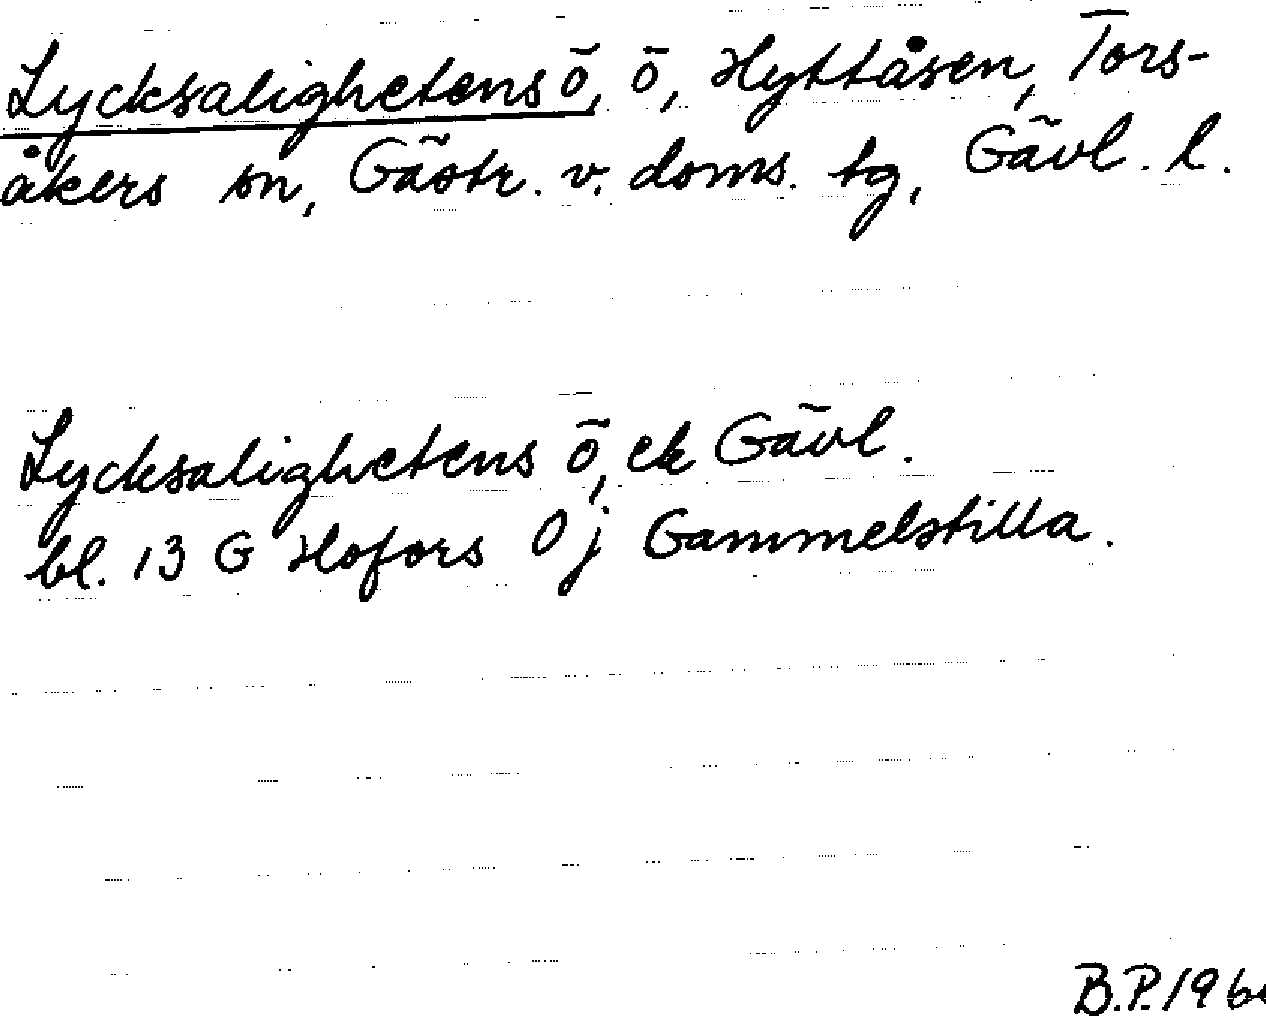 Lycksalighetens ö, ö, Hyttåsen, Tors-
åkers sn, Gästr. v. doms. tg, Gävl. l.
Lycksalighetens ö, ek Gävl.
bl. 13 G Hofors Oj Gammelstilla.
B.P. 196